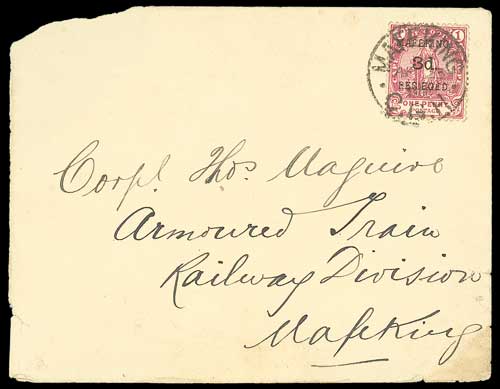 MAFEKING
1
MAFEKING
3d.
BESIEGED.
ONE PENNY
POSTAGE
Corpl. Thos. Maguire
Armoured Train
Railway Division
Mafeking